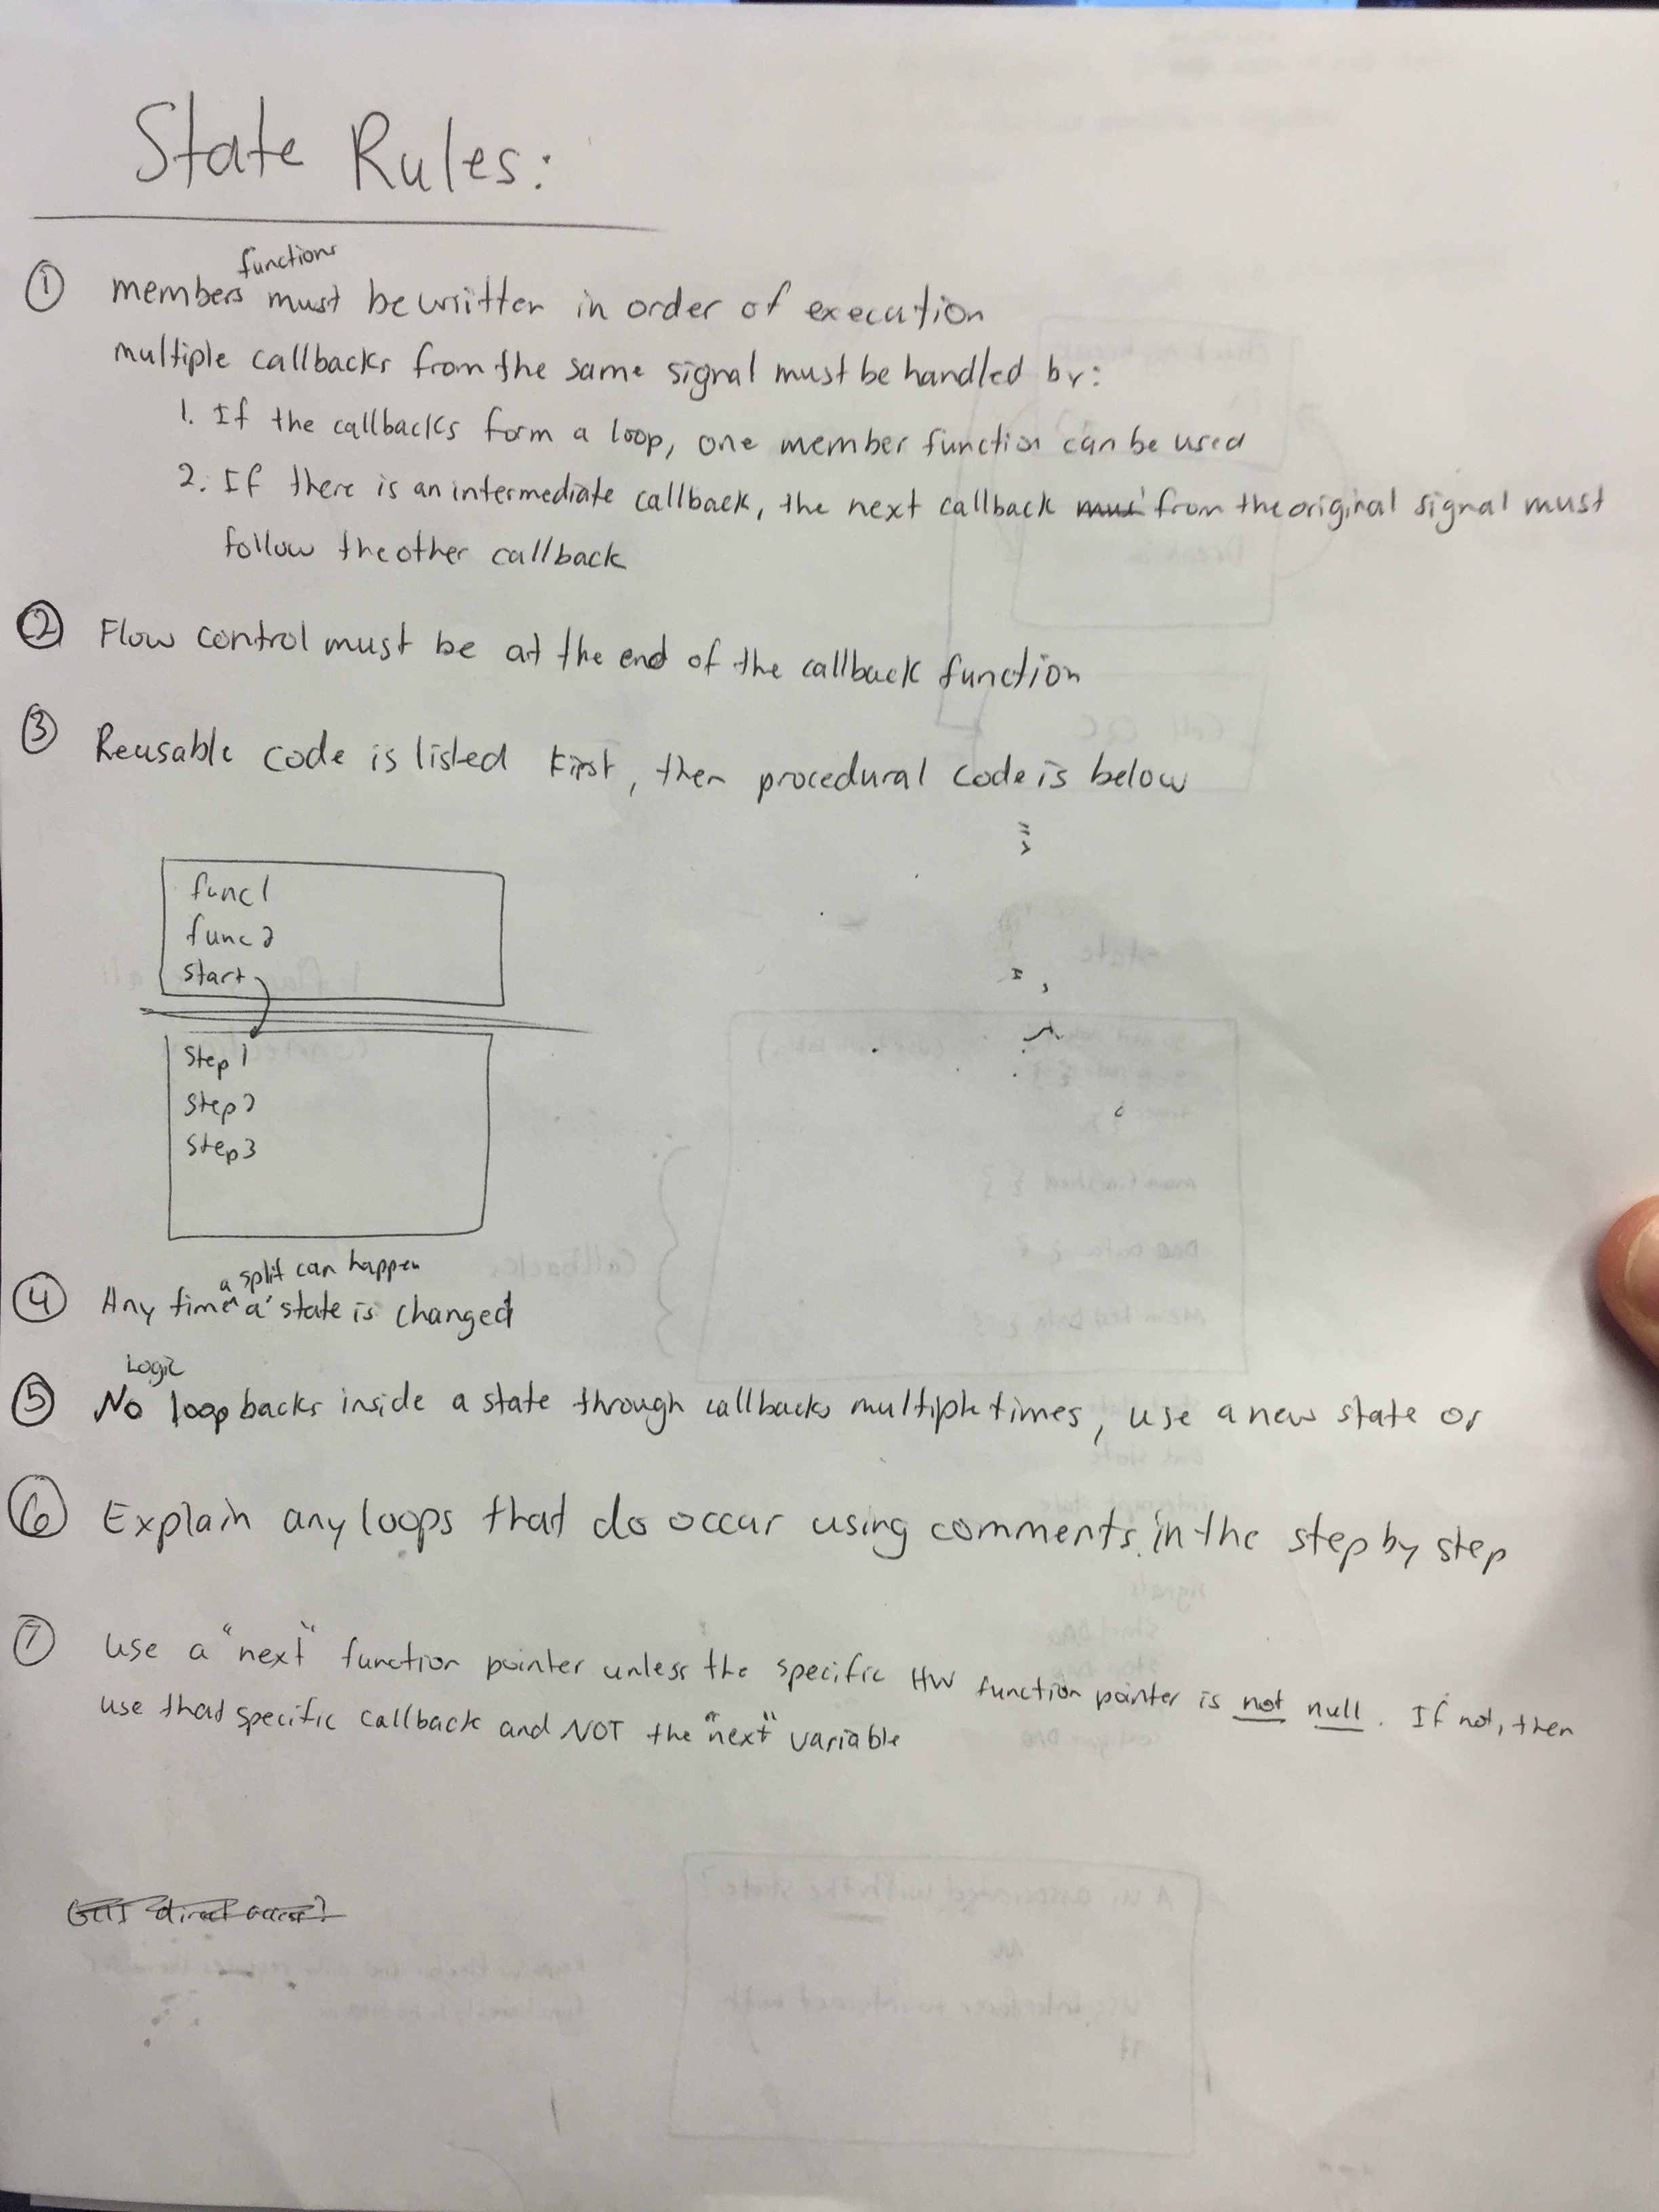 State Rules:
① members functions must be written in order of execution
multiple callbacks from the same signal must be handled by:
1. If the callbacks form a loop, one member function can be used
2. If there is an intermediate callback, the next callback from the original signal must
follow the other callback
② Flow control must be at the end of the callback function
③ Reusable code is listed first, then procedural code is below
func1
func2
start
Step 1
Step 2
Step 3
④ Any time a split can happen a state is changed
⑤ No Logic loop backs inside a state through callbacks multiple times, use a new state or
⑥ Explain any loops that do occur using comments in the step by step
⑦ use a "next" function pointer unless the specific HW function pointer is not null. If not, then
use that specific callback and NOT the "next" variable